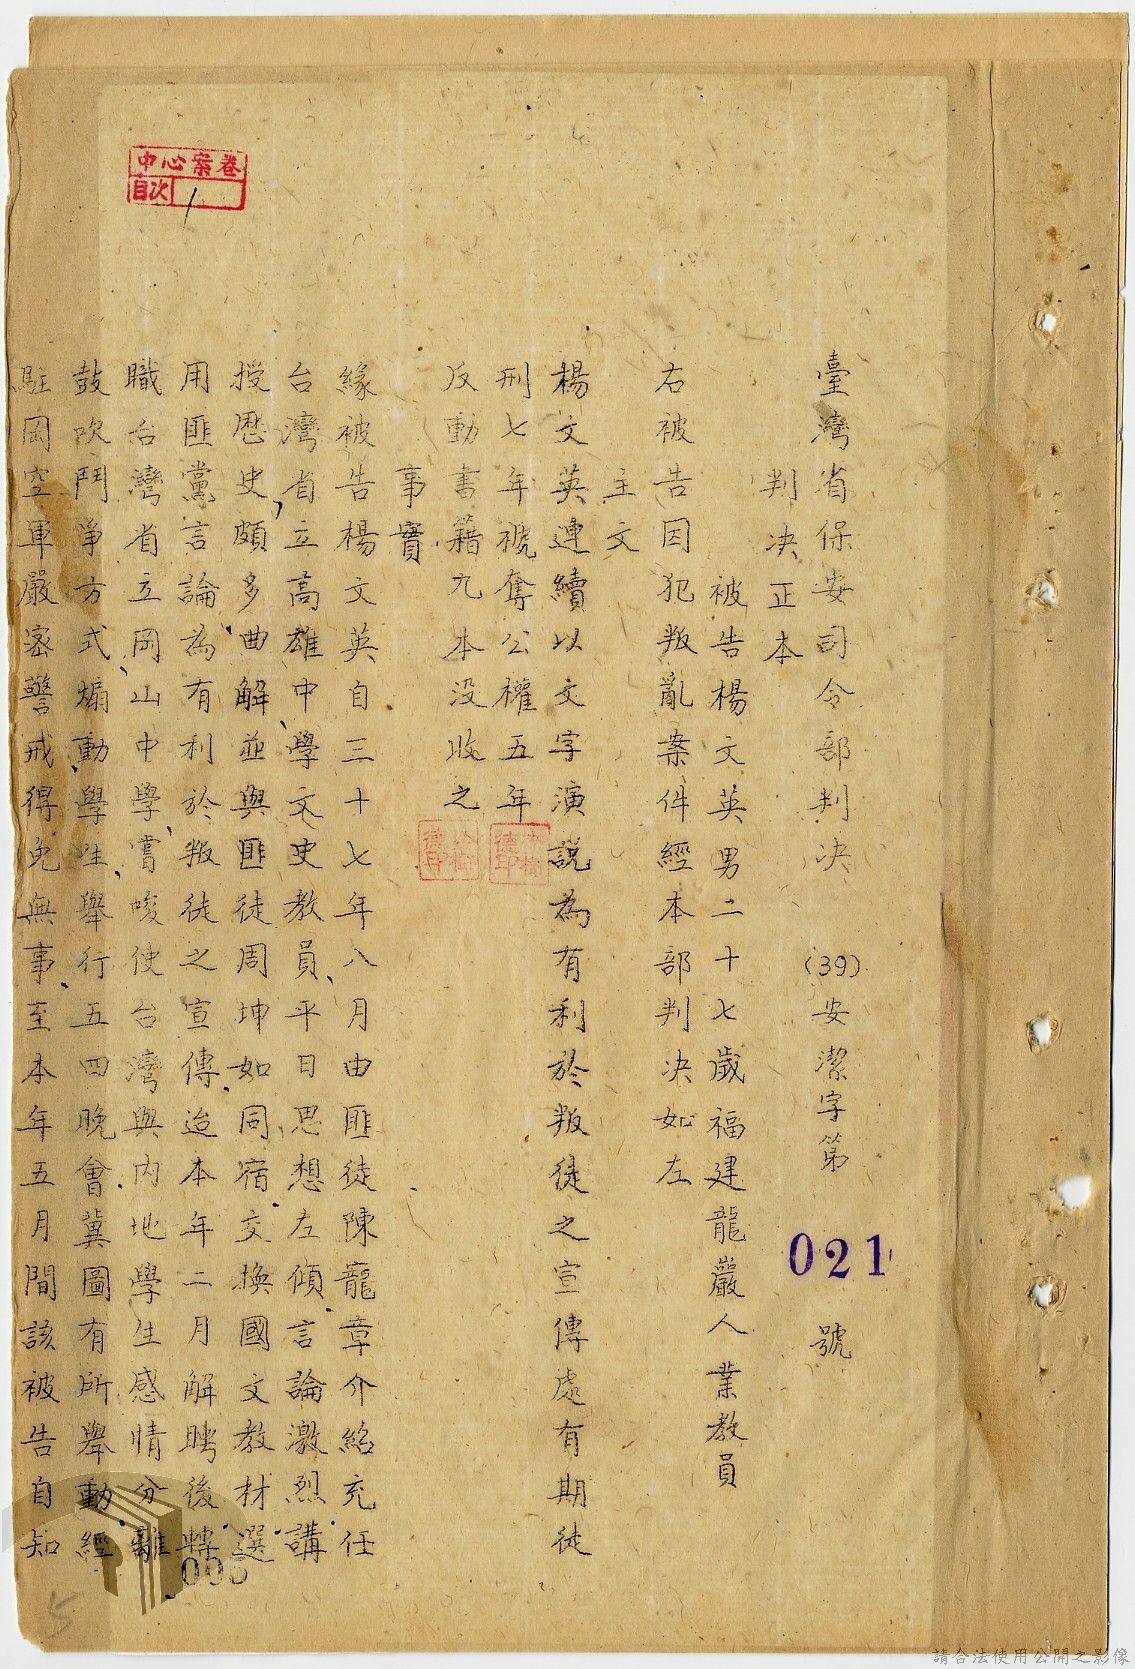 臺灣省保安司令部判決 (39)安潔字第 021 號
判決正本
被告楊文英男二十七歲福建龍巖人業教員
右被告因犯叛亂案件經本部判決如左
主文
楊文英連續以文字演說為有利於叛徒之宣傳處有期徒
刑七年褫奪公權五年
反動書籍九本没收之
事實
緣被告楊文英自三十七年八月由匪徒陳龍章介紹充任
台灣省立高雄中學文史教員、平日思想左傾、言論激烈、講
授歷史、頗多曲解、並與匪徒周坤如同宿、交換國文教材、選
用匪黨言論、為有利於叛徒之宣傳、迨本年二月解聘後、轉
職台灣省立岡山中學、嘗唆使台灣與內地學生感情分離、
鼓吹鬥爭方式、煽動學生、舉行五四晚會、冀圖有所舉動、經
駐岡空軍嚴密警戒得免無事至本年五月間該被告自知
中心案卷
目次
1
005
5
請合法使用公開之影像